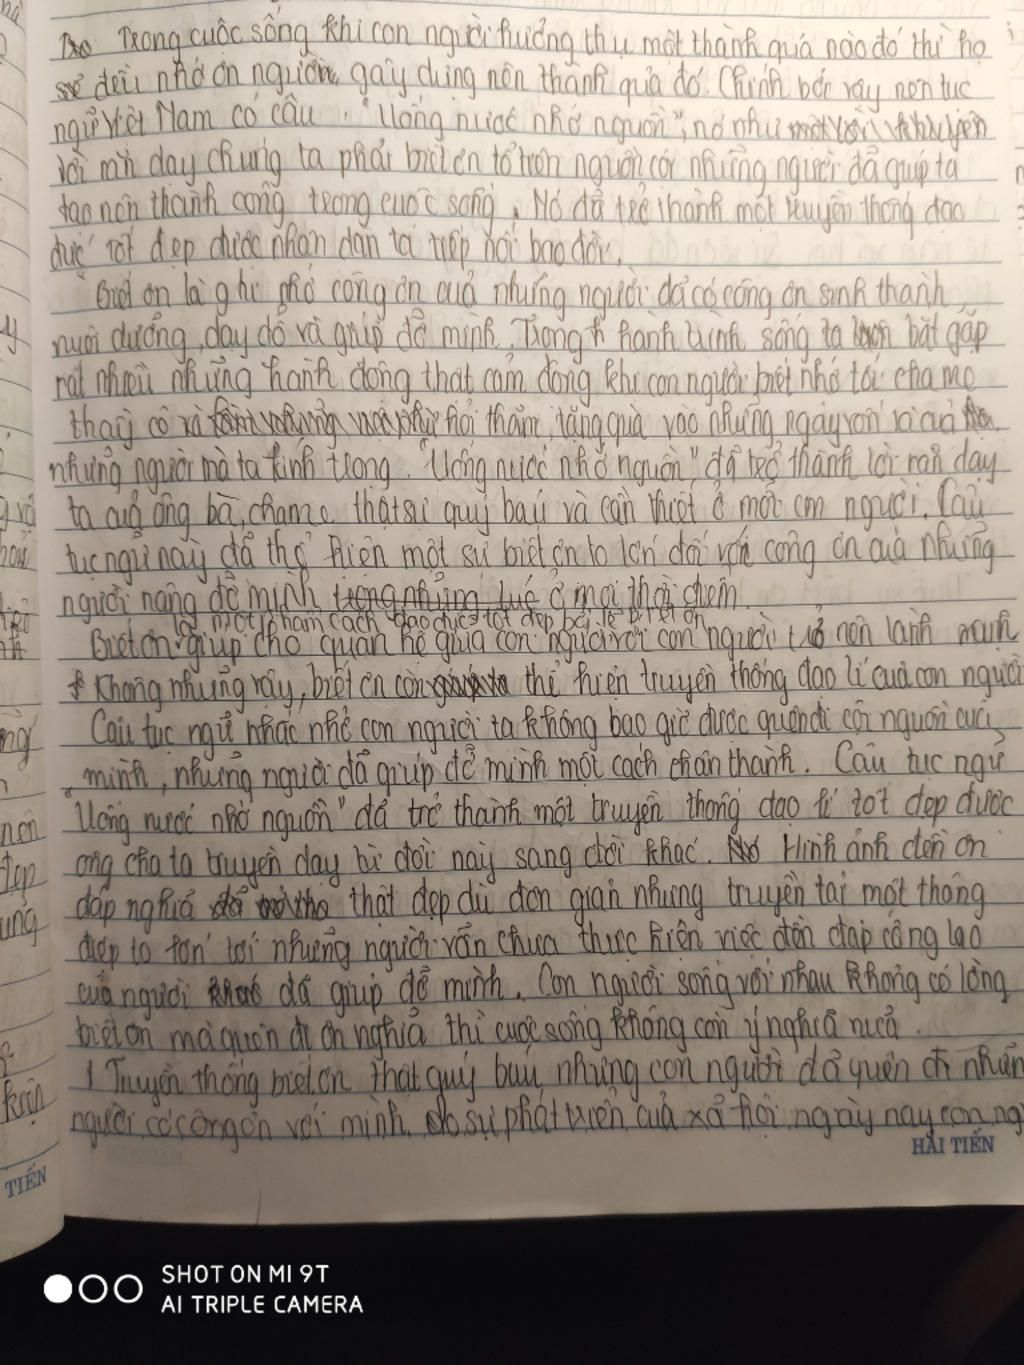 Trong cuộc sống khi con người hưởng thụ một thành quả nào đó thì họ
sẽ đều nhớ ơn người gây dựng nên thành quả đó. Chính bởi vậy nên tục
ngữ Việt Nam có câu "Uống nước nhớ nguồn", nó như
lời răn dạy chúng ta phải biết ơn tổ tiên nguồn cội những người đã giúp ta
tạo nên thành công trong cuộc sống. Nó đã trở thành một truyền thống đạo
đức tốt đẹp được nhân dân ta tiếp nối bao đời.
Biết ơn là ghi nhớ công ơn của những người đã có công ơn sinh thành,
nuôi dưỡng, dạy dỗ và giúp đỡ mình. Trong hành trình sống ta luôn bắt gặp
rất nhiều những hành động thật cảm động khi con người biết nhớ tới cha mẹ
thầy cô và hỏi thăm, tặng quà vào những ngày của
những người mà ta kính trọng. "Uống nước nhớ nguồn" đã trở thành lời răn dạy
ta của ông bà, cha mẹ thật sự quý báu và cần thiết ở mỗi con người. Câu
tục ngữ này đã thể hiện một sự biết ơn to lớn đối với công ơn của những
người nâng đỡ mình trong những lúc ở mọi thời điểm.
là một phẩm cách đạo đức tốt đẹp bởi lẽ biết ơn
Biết ơn giúp cho quan hệ giữa con người với con người trở nên lành mạnh
Không những vậy, biết ơn còn thể hiện truyền thống đạo lí của con người
Câu tục ngữ nhắc nhở con người ta không bao giờ được quên đi cội nguồn của
mình, những người đã giúp đỡ mình một cách chân thành. Câu tục ngữ
"Uống nước nhớ nguồn" đã trở thành một truyền thống đạo lí tốt đẹp được
ông cha ta truyền dạy từ đời này sang đời khác. Hình ảnh đền ơn
đáp nghĩa thật đẹp dù đơn giản nhưng truyền tải một thông
điệp to lớn tới những người vẫn chưa thực hiện việc đền đáp công lao
của người khác đã giúp đỡ mình. Con người sống với nhau không có lòng
biết ơn mà quên đi ơn nghĩa thì cuộc sống không còn ý nghĩa nữa.
Truyền thống biết ơn thật quý báu nhưng con người đã quên đi những
người có công ơn với mình. Do sự phát triển của xã hội ngày nay con ng
HẢI TIẾN
TIẾN
SHOT ON MI 9T
AI TRIPLE CAMERA